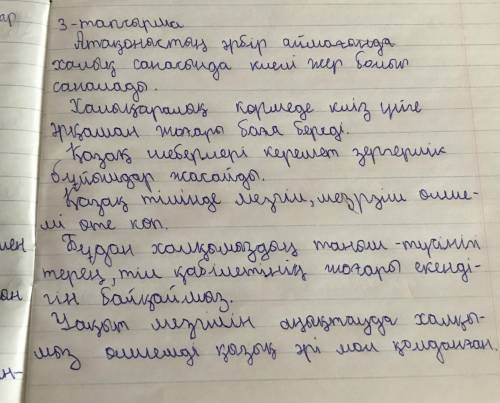 ар
3-тапсырма
Атақоныстың әрбір аймағында
халық санасында киелі жер болып
саналады.
Халықаралық көрмеде киіз үйге
әрқашан жоғары баға береді.
Қазақ шеберлері керемет зергерлік
бұйымдар жасайды.
Қазақ тілінде мезгіл, мезрзім өлше-
мі өте көп.
мен Бұдан халқымыздың таным-түрінің
терең, тіл қабілетінің жоғары екенді-
ын гін байқаймыз.
Уақыт мезгілін анықтауда халқы-
мыз өлшемді қызық әрі мол қолданған.
ін-